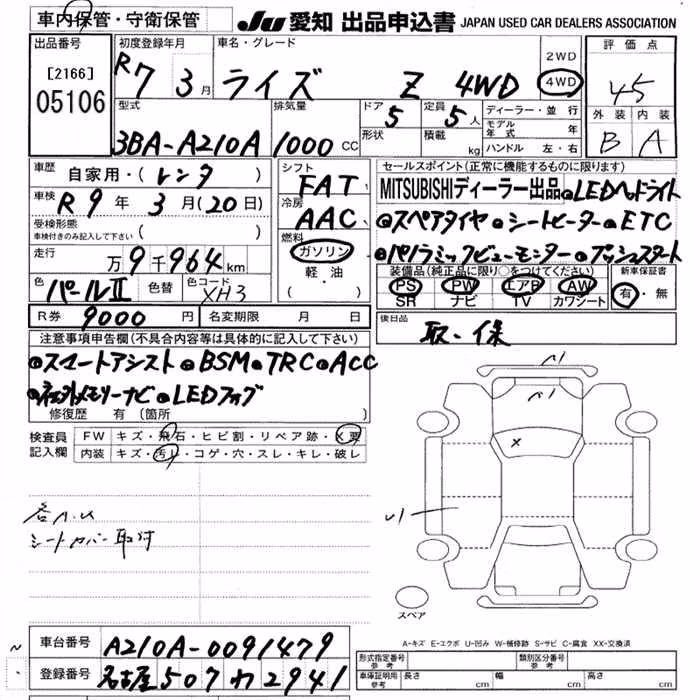 車内保管・守衛保管
JU 愛知 出品申込書 JAPAN USED CAR DEALERS ASSOCIATION
出品番号
[2166]
05106
初度登録年月
R7年3月
車名・グレード
ライズ Z 4WD
2WD
4WD
評価点
4.5
外装 内装
B A
型式
3BA-A210A
排気量
1000 CC
ドア
5
形状
定員
5人
積載
kg
ディーラー・並行
モデル年式 年
ハンドル 左・右
車歴
自家用・(レンタ)
車検
R9年3月(20日)
受検形態
車検付きのみ記入して下さい ( )
走行
万9千964km
色
パールII
色替
色コード
XH3
シフト
FAT
冷房
AAC
燃料
ガソリン
軽・油
( ・ )
セールスポイント(正常に機能するものに限ります)
MITSUBISHIディーラー出品 LEDヘッドライト
スペアタイヤ シートヒーター ETC
パノラミックビューモニター プッシュスタート
装備品(純正品に限り○をつけてください)
PS PW エアB AW
SR ナビ TV カワシート
新車保証書
有・無
R券 9000円
名変期限 月 日
後日品
取・保
注意事項申告欄(不具合内容等は具体的に記入して下さい)
スマートアシスト BSM TRC ACC
社外メモリーナビ LEDフォグ
修復歴 有 (箇所 )
検査員記入欄
FW キズ・飛石・ヒビ割・リペア跡・X要
内装 キズ・汚レ・コゲ・穴・スレ・キレ・破レ
各A.U
シートカバー取付
スペア
A-キズ E-エクボ U-凹み W-補修跡 S-サビ C-腐食 XX-交換済
車台番号
A210A-0091479
登録番号
名古屋 507 ワ 2941
形式指定番号 参考
類別区分番号 参考
車庫証明用 参考
長さ cm 幅 cm 高さ cm